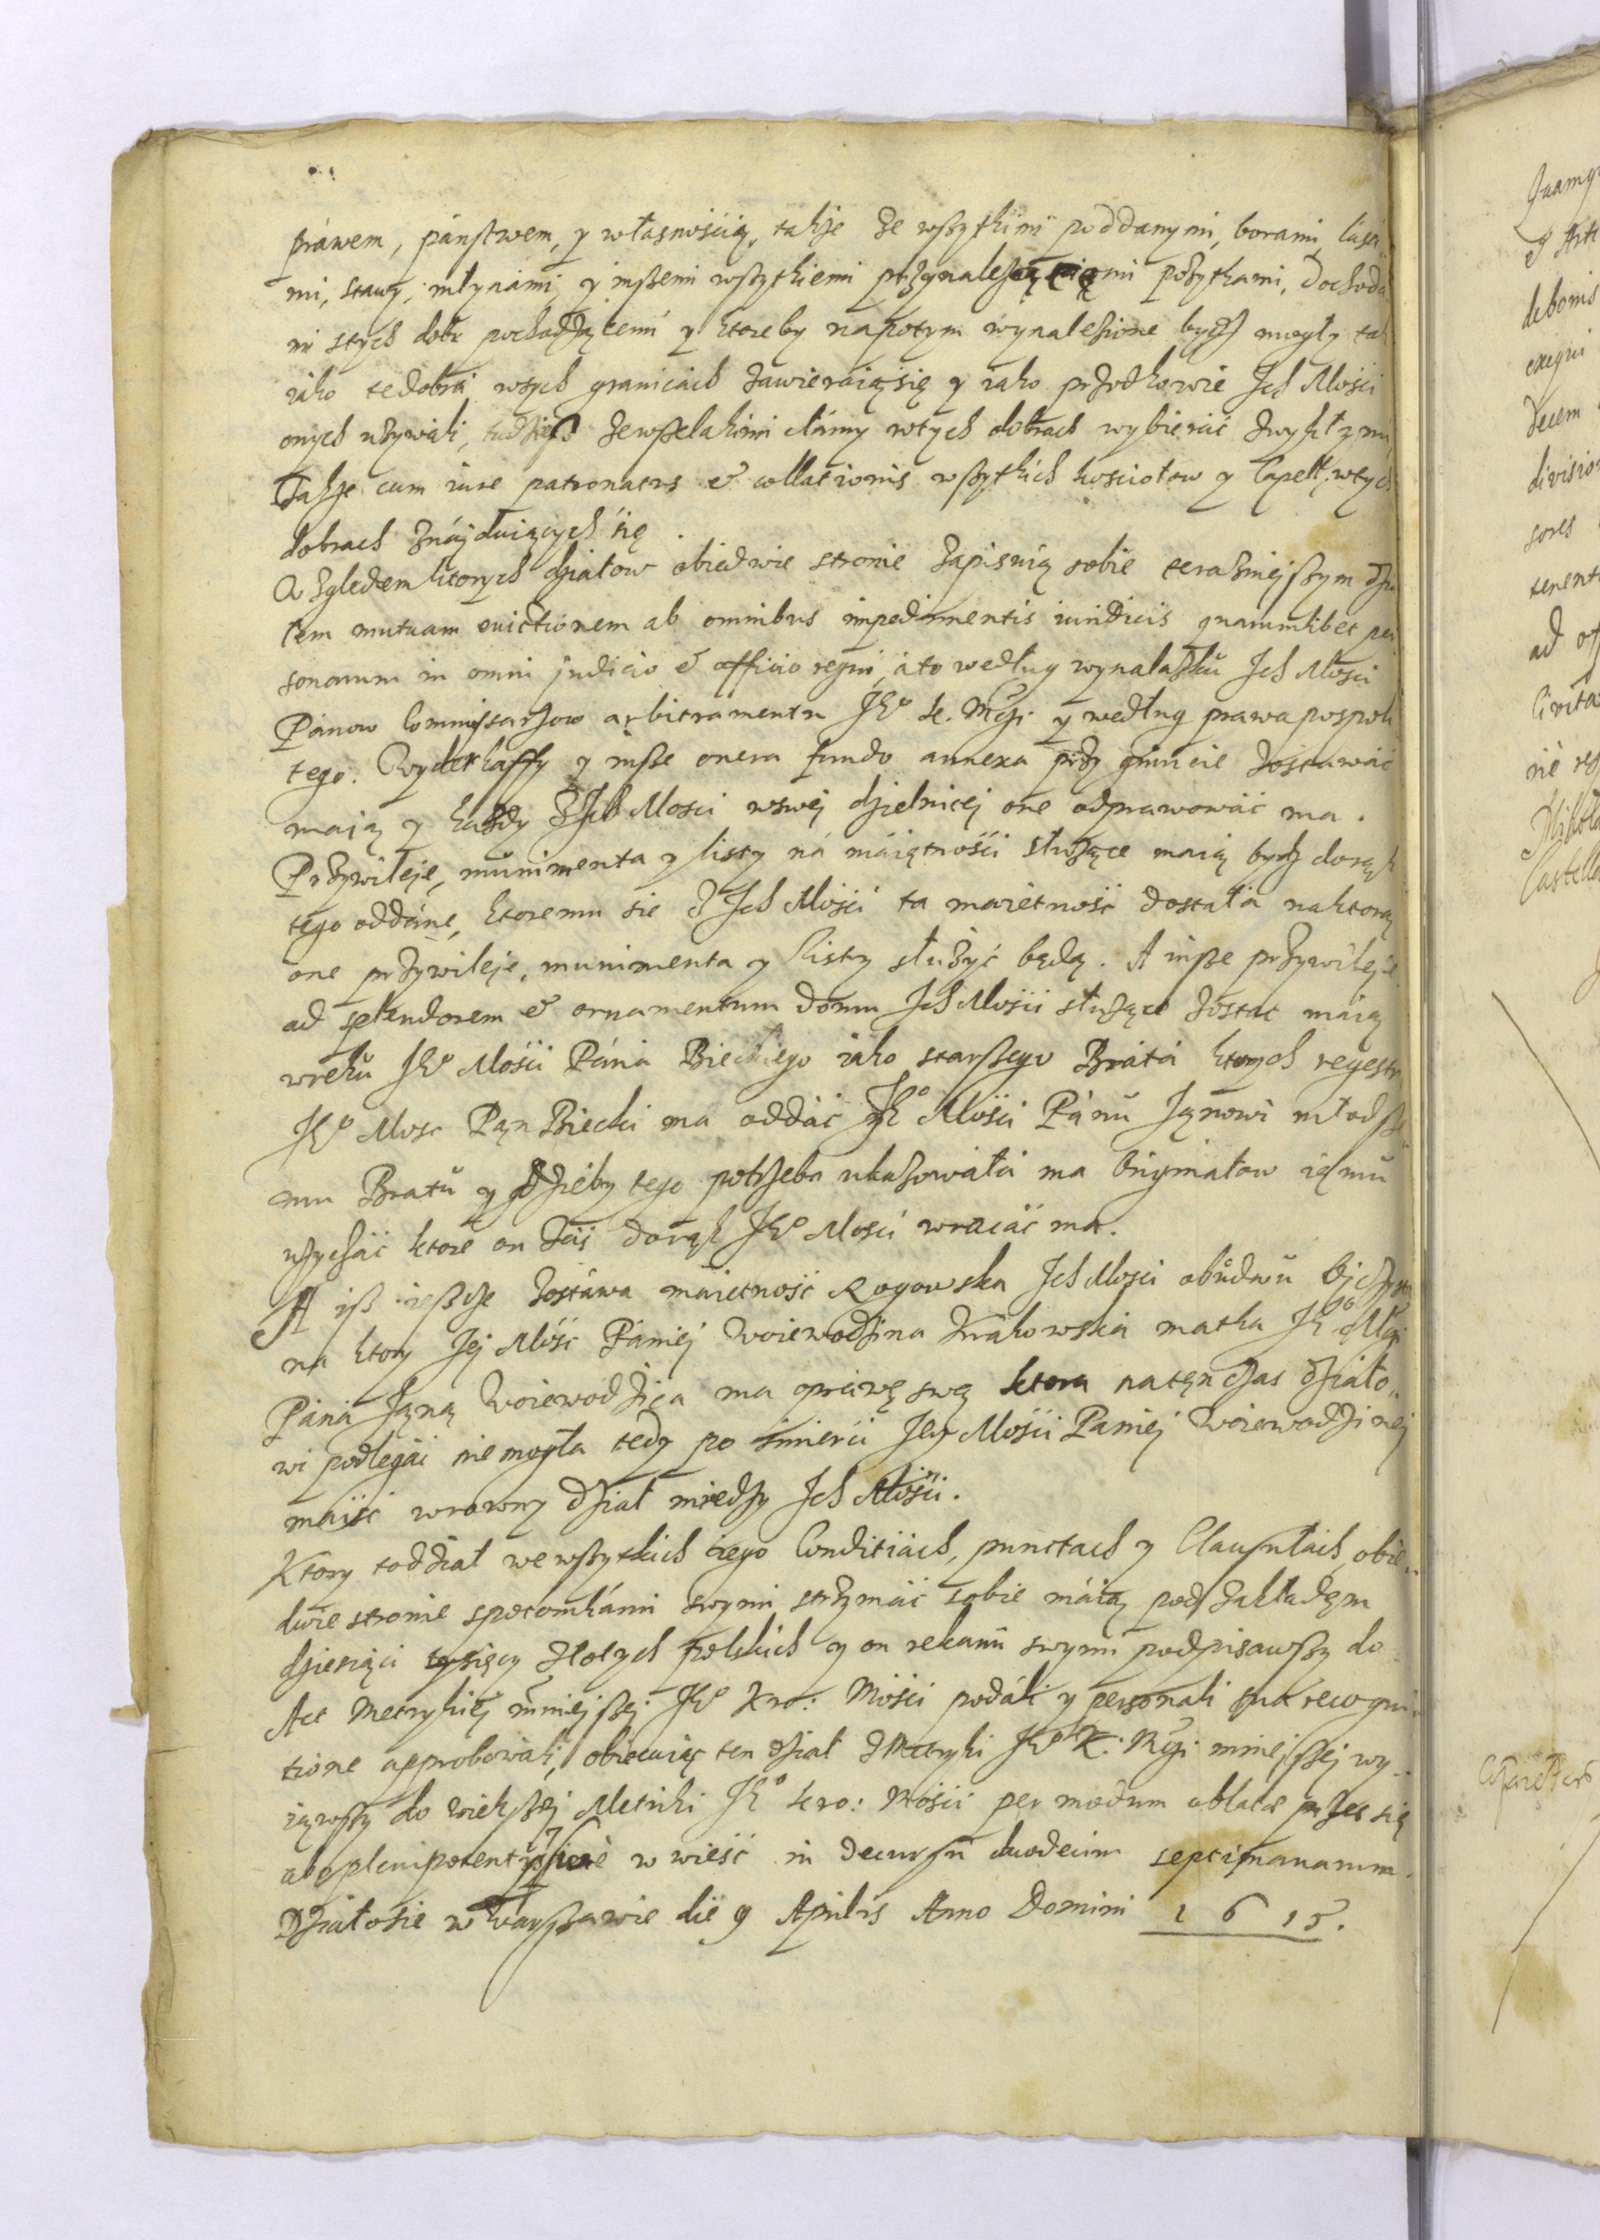 práwem, páństwem, y własnością, takze ze wßytkimi poddanymi, borami, lasa
mi, stawy, młynámi y inßemi wßytkiemi przynależącemi pożytkami, dochoda
mi stych dobr pochodzącemi y ktoreby napotym wynaleźione bydz mogły tak
iáko tedobrá wtych granicách zawieraią się y iáko przodkowie Ich Mości
onych używali, tudzieß zewßelakimi cłámy wtych dobrach wybieráć zwykłymi
Takze cum iure patronatus et collationis wßytkich kosciołow y Capell wtych
dobrach znáyduiących się.
Względem ktorych działow obiedwie stronie zapisuią sobie teraznieyßym dzia
łem mutuam euictionem ab omnibus impedimentis iuridicis quarumlibet per
sonarum in omni judicio et officio regni, á to według wynalasku Ich Mości
Pánow Commissarzow arbitramentu JKo K. Mći y według prawa pospoli
tego. Wyderkaffy y inße onera fundo annexa przy gruncie zostawáć
maią y każdy z Ich Mosci wswej dzielnicej one odprawowáć ma.
Przywileje, munimenta y listy ná máiętnośći służące maią bydz dorąk
tego oddáne, ktoremu sie z Ich Mości ta maietność dostała naktorą
one przywileje, munimenta y Listy służyć będą. A inße przywileje
ad splendorem et ornamentum domu Ich Mości służące zostać máią
wręku JKo Mości Pána Bieckiego iáko starßego Bráta ktorych regestr
JKo Mosc Pan Biecki ma oddáć JKo Mości Pánu Janowi młodße
mu Bratu y gdzieby tego potrzeba ukazowáłá ma Originałow iemu
użyczáć ktore on záś dorąk JKo Mości wracáć ma.
A iß ieszcze zostáwa máietność Rogowska Ich Mości obudwu Ojczysta
na ktory Jej Mość Pániej Woiewodzina Krákowska matka JKo Mći
Páná Janá Woiewodzica ma oprawę swą ktora natenczas działo
wi podlegáć niemogła tedy po śmierći Jey Mości Paniej Woiewodzinej
maiść wrowny dział miedzy Ich Mości.
Ktory toddział wewßytkich iego Conditiách, punctach y Clausulách, obie
dwie stronie spotomkámi swymi strzymáć sobie máią pod zakładem
dziesiąci tysięcy złotych polskich y on rekami swymi podpisawßy do
Act Metrykiej mniejßej JKo Kro: Mości podáli y personali sua recogni
tione approbowáli, obiecuiąc ten dział z Metryki JKo K: Mći mniejßej wy
iąwßy do wiekßej Metriki JKo Kro: Mości per modum oblatæ przes się
abo plenipotenty swoie w wieść in decursu duodecim septimanarum.
Działosie w Warßawie die 9 Aprilis Anno Domini 1615.